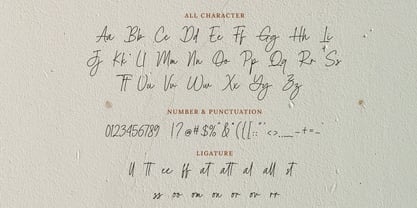 ALL CHARACTER
Aa Bb Cc Dd Ee Ff Gg Hh Ii
Jj Kk Ll Mm Nn Oo Pp Qq Rr Ss
Tt Uu Vv Ww Xx Yy Zz
NUMBER & PUNCTUATION
0123456789 !? @#$%^&*()[]:;"" <>.,_-+=~
LIGATURE
ll tt ee ff at att al all st
ss oo om on or ov rr